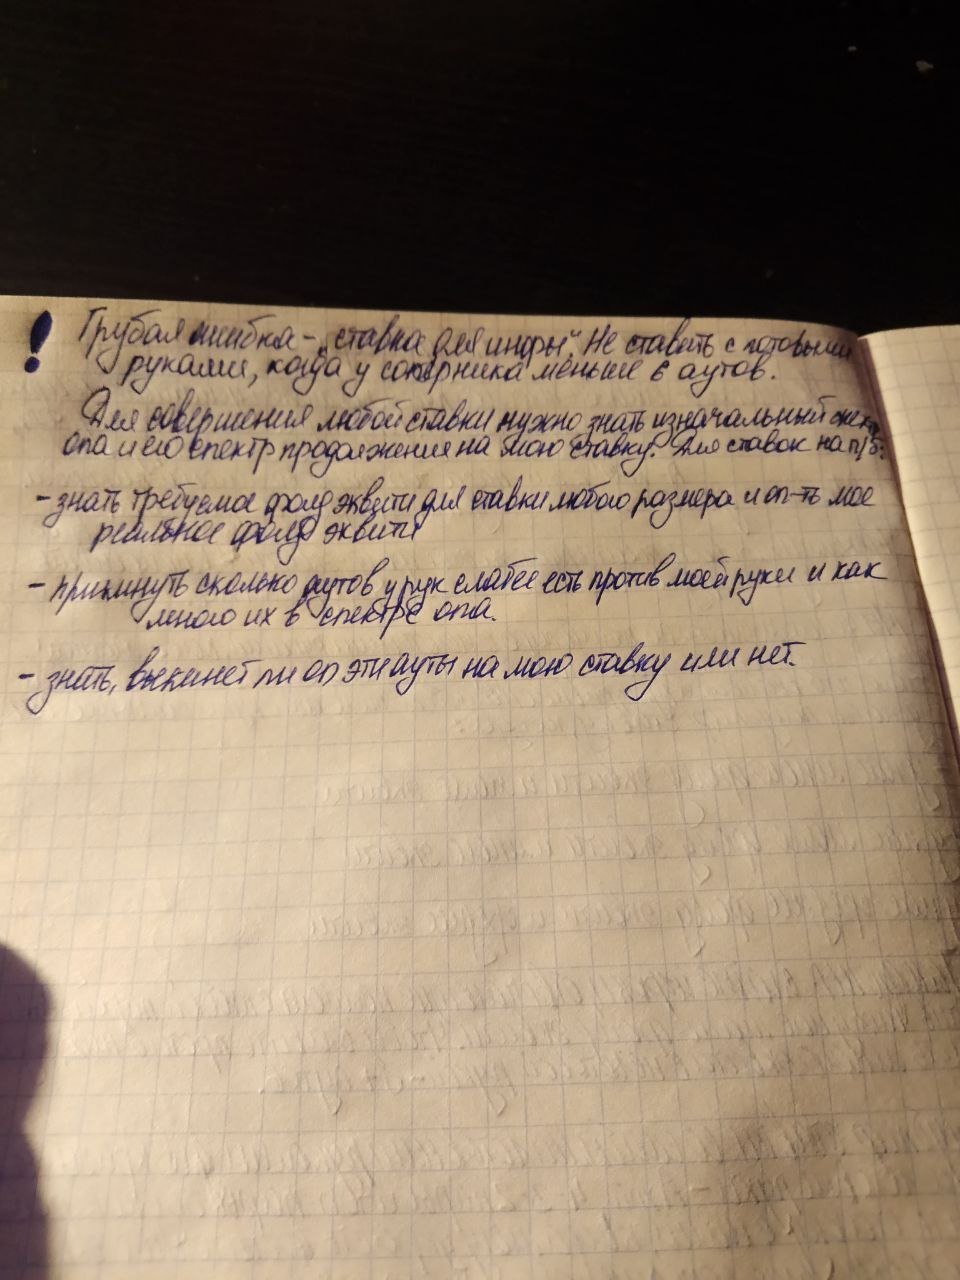 ! Грубая ошибка – „ставка для инфы". Не ставить с готовыми
руками, когда у соперника меньше 6 аутов.
Для совершения любой ставки нужно знать изначальный
опа и его спектр продолжения на мою ставку. Для ставок на п/б:
- знать требуемое фолд эквити для ставки любого размера и оп-ть мое
реальное фолд эквити
- прикинуть сколько аутов у рук слабее есть против моей руки и как
много их в спектре опа.
- знать, выкинет ли оп эти ауты на мою ставку или нет.